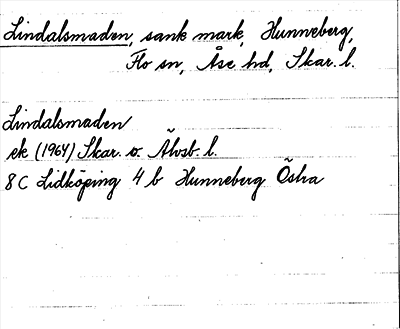 Lindalsmaden, sank mark, Hunneberg,
Flo sn, Åse hd, Skar. l.
Lindalsmaden
ek (1964) Skar. o. Älvsb. l.
8 C Lidköping 4 b Hunneberg Östra